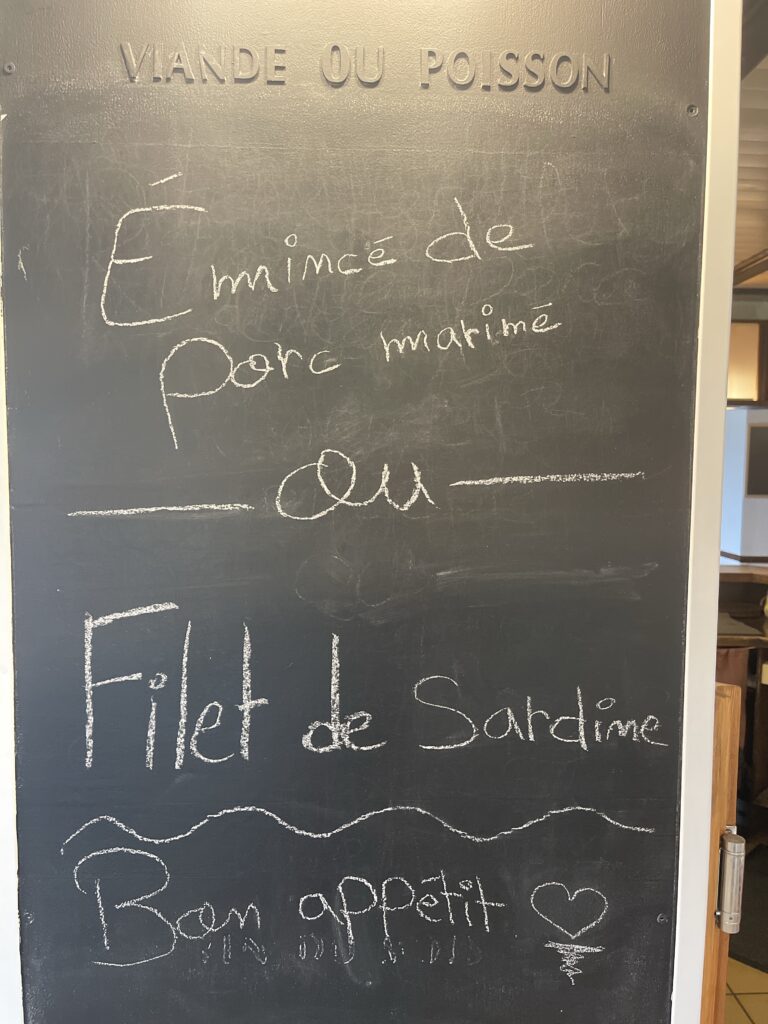 VIANDE OU POISSON
Émincé de
porc mariné
ou
Filet de Sardine
Bon appétit